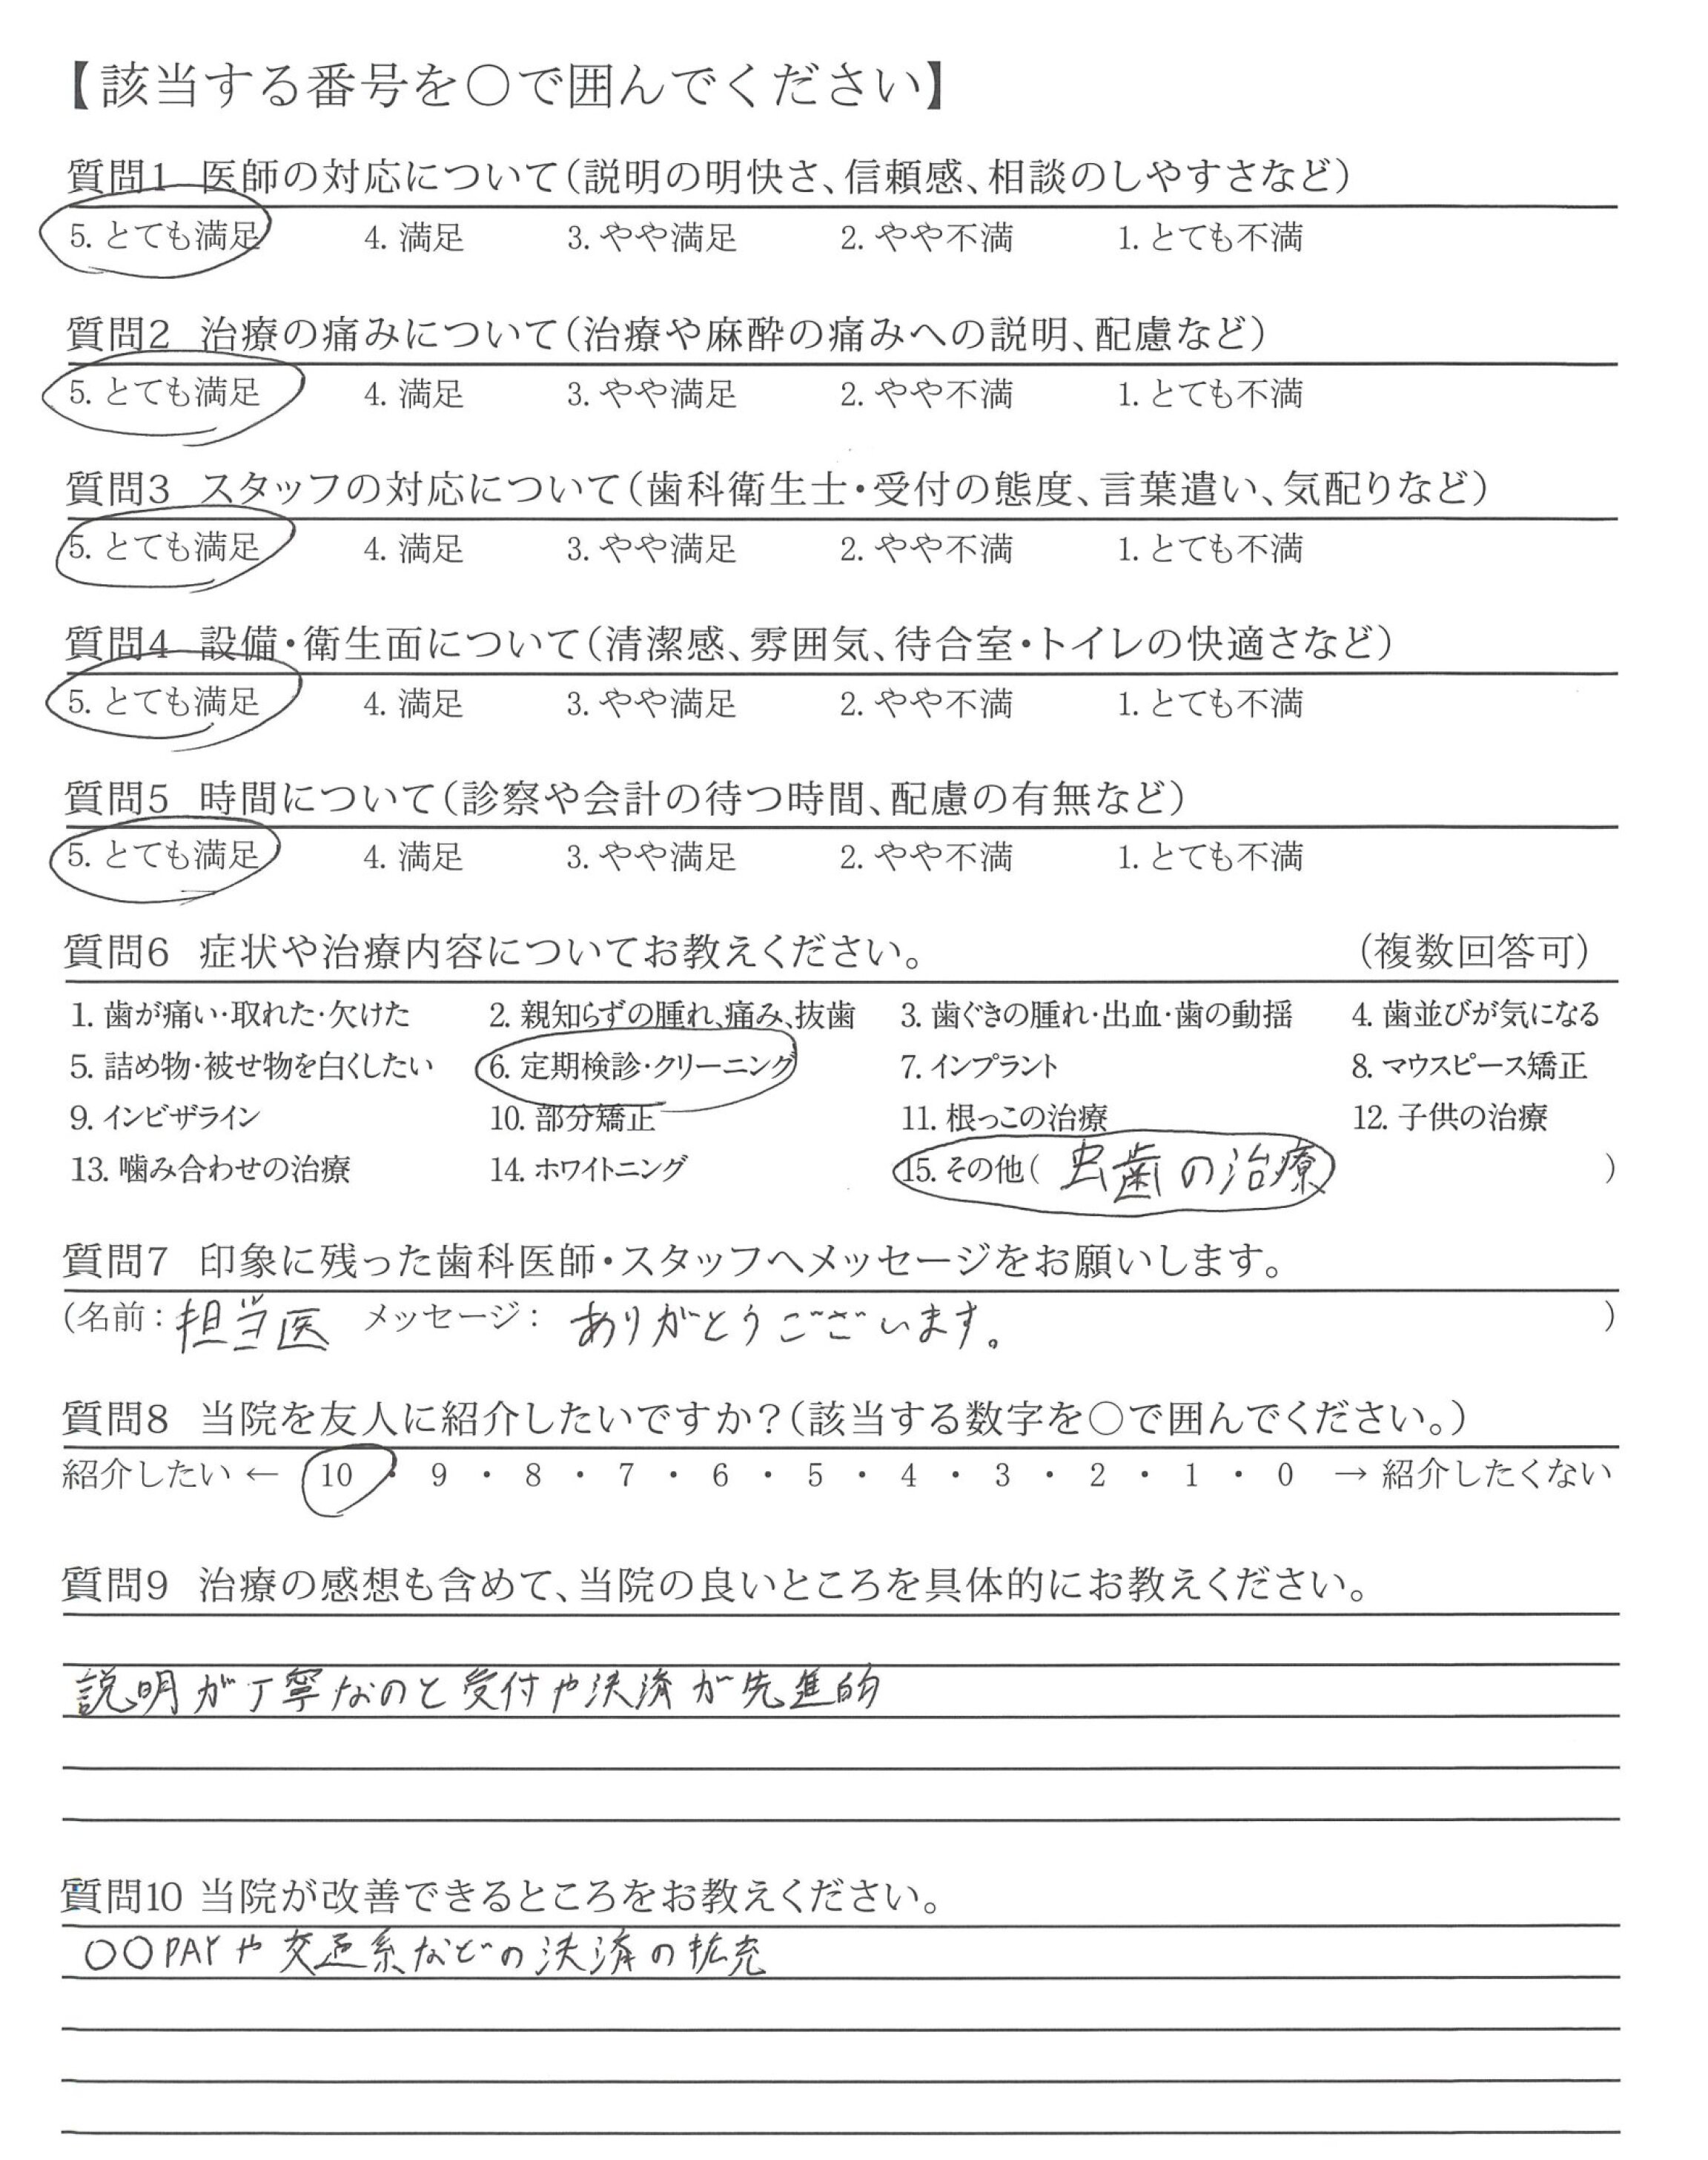 【該当する番号を○で囲んでください】
質問1 医師の対応について(説明の明快さ、信頼感、相談のしやすさなど)
5. とても満足 4. 満足 3. やや満足 2. やや不満 1. とても不満
質問2 治療の痛みについて(治療や麻酔の痛みへの説明、配慮など)
5. とても満足 4. 満足 3. やや満足 2. やや不満 1. とても不満
質問3 スタッフの対応について(歯科衛生士・受付の態度、言葉遣い、気配りなど)
5. とても満足 4. 満足 3. やや満足 2. やや不満 1. とても不満
質問4 設備・衛生面について(清潔感、雰囲気、待合室・トイレの快適さなど)
5. とても満足 4. 満足 3. やや満足 2. やや不満 1. とても不満
質問5 時間について(診察や会計の待つ時間、配慮の有無など)
5. とても満足 4. 満足 3. やや満足 2. やや不満 1. とても不満
質問6 症状や治療内容についてお教えください。 (複数回答可)
1. 歯が痛い・取れた・欠けた 2. 親知らずの腫れ、痛み、抜歯 3. 歯ぐきの腫れ・出血・歯の動揺 4. 歯並びが気になる
5. 詰め物・被せ物を白くしたい 6. 定期検診・クリーニング 7. インプラント 8. マウスピース矯正
9. インビザライン 10. 部分矯正 11. 根っこの治療 12. 子供の治療
13. 噛み合わせの治療 14. ホワイトニング 15. その他( 虫歯の治療 )
質問7 印象に残った歯科医師・スタッフへメッセージをお願いします。
(名前: 担当医 メッセージ: ありがとうございます。 )
質問8 当院を友人に紹介したいですか?(該当する数字を○で囲んでください。)
紹介したい ← 10 ・ 9 ・ 8 ・ 7 ・ 6 ・ 5 ・ 4 ・ 3 ・ 2 ・ 1 ・ 0 → 紹介したくない
質問9 治療の感想も含めて、当院の良いところを具体的にお教えください。
説明が丁寧なのと受付や決済が先進的
質問10 当院が改善できるところをお教えください。
○○PAYや交通系などの決済の拡充